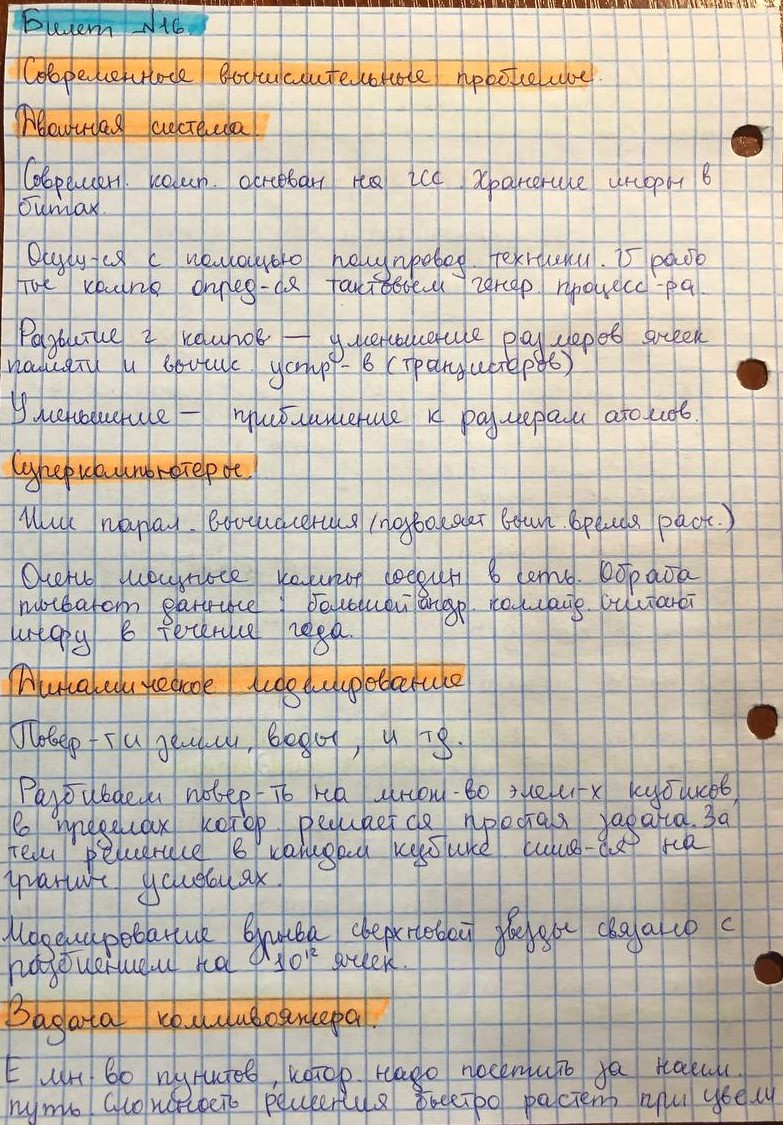 Билет №16.
Современные вычислительные проблемы.
Двоичная система.
Современ. комп. основан на 2сс. Хранение инфы в
битах.
Осущ-ся с помощью полупровод. техники. V рабо
ты компа опред-ся тактовым генер процесс-ра.
Развитие 2 компов — уменьшение размеров ячеек
памяти и вычис. устр-в (транзисторов)
Уменьшение — приближение к размерам атомов.
Суперкомпьютеры.
Или парал. вычисления (позволяет вып. время расч.)
Очень мощные компы соедин в сеть. Обраба
тывают данные: большой андр. коллайд. считают
инфу в течение года.
Динамическое моделирование
Повер-ти земли, воды, и тд.
Разбиваем повер-ть на множ-во элем-х кубиков,
в пределах котор. решается простая задача. За
тем решение в каждом кубике сшив-ся на
гранич условиях.
Моделирование взрыва сверхновой звезды связано с
разбиением на 10¹² ячеек.
Задача коммивояжера.
Е мн-во пунктов, котор. надо посетить за наим.
путь. Сложность решения быстро растет при увели